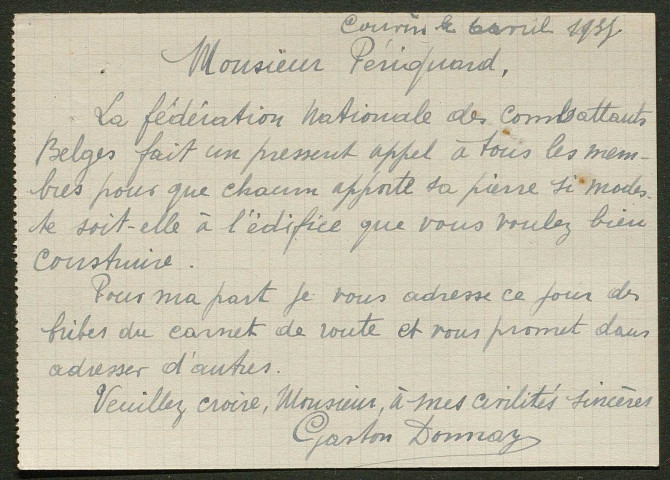 Couvin le 6 avril 1937
Monsieur Périquard,
La fédération Nationale des combattants
Belges fait un pressent appel à tous les mem-
bres pour que chacun apporte sa pierre si modes-
te soit-elle à l'édifice que vous voulez bien
construire.
Pour ma part je vous adresse ce jour des
bribes du carnet de route et vous promet d'en
adresser d'autres.
Veuillez croire, Monsieur, à mes civilités sincères
Gaston Donnay